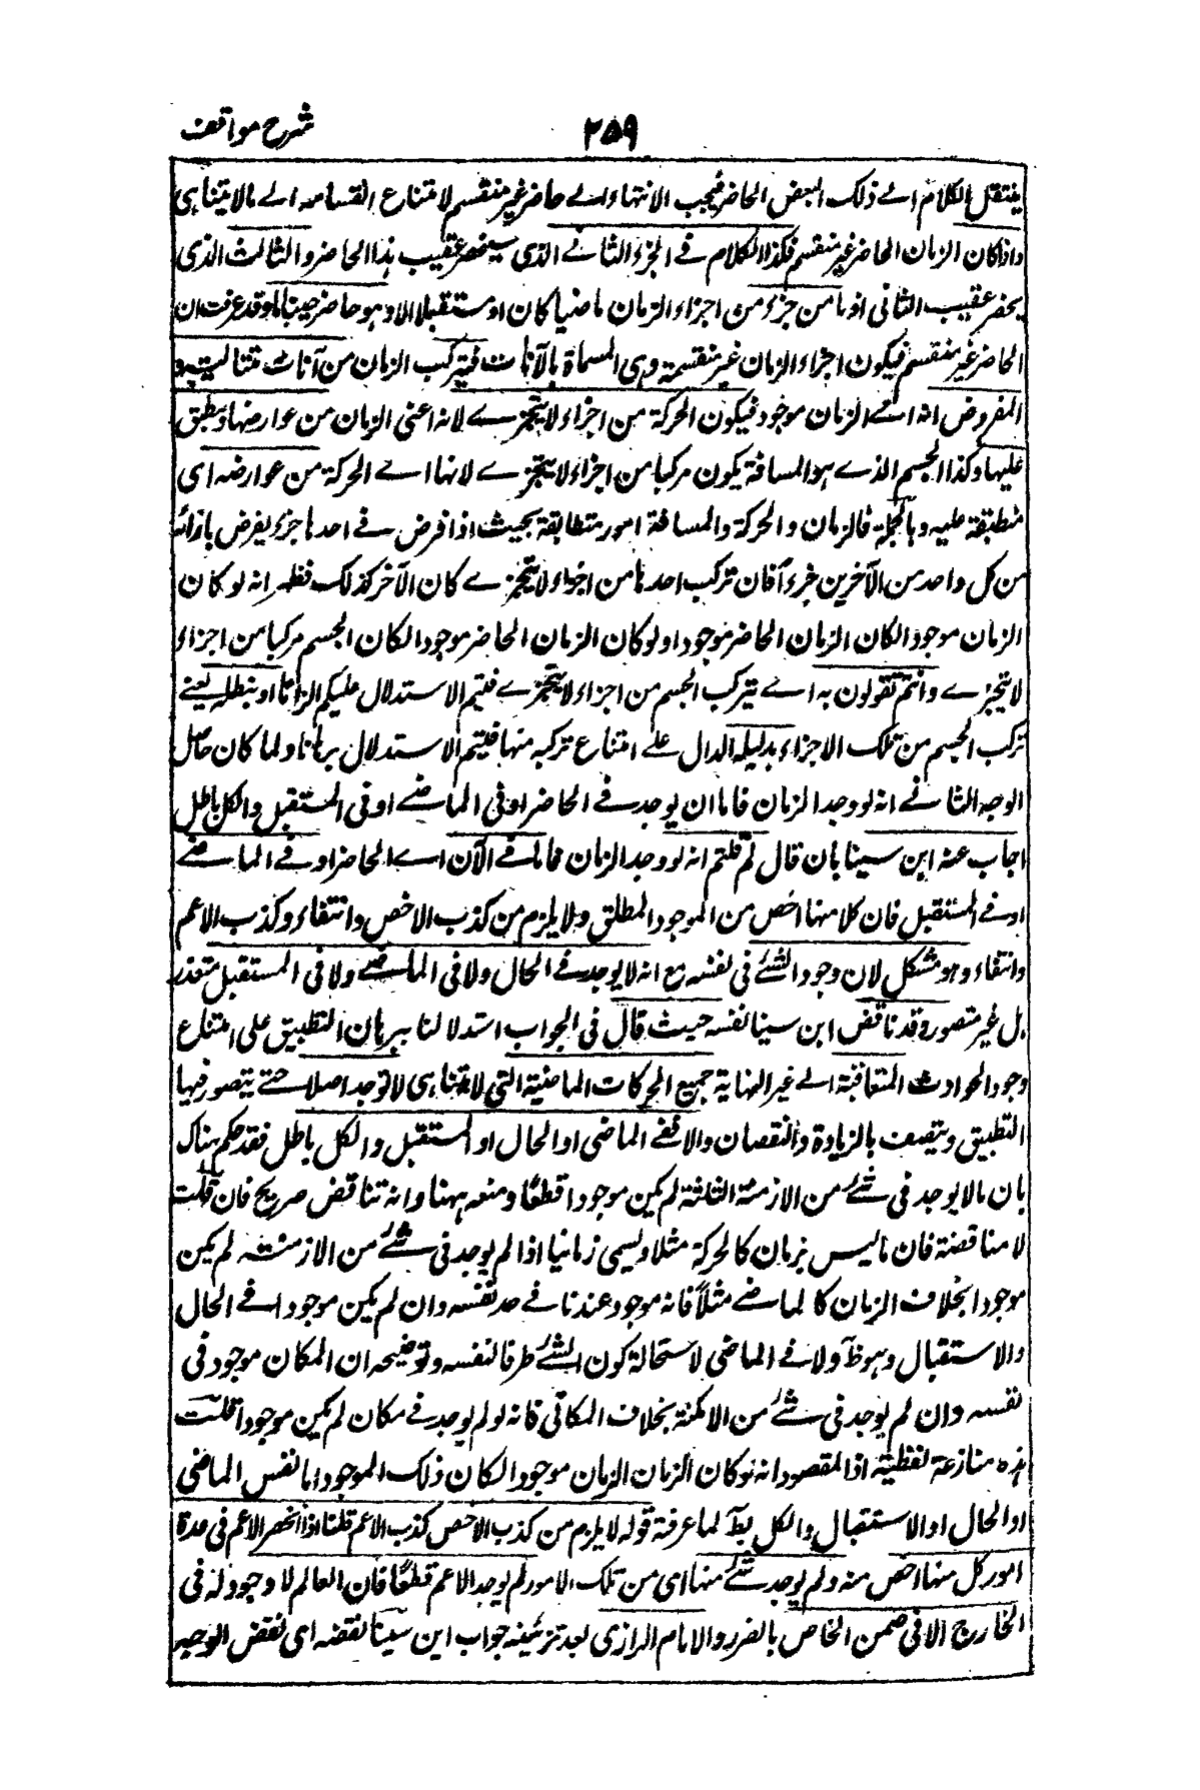 ٢٥٩ شرح مواقف
ينتقل الكلام الے ذلک البعض الحاضر فيجب الانتهاء الے حاضر غير منقسم لامتناع انقسامه الے مالا يتناہی
واذا كان الزمان الحاضر غير منقسم فكذا الكلام فے الجزء الثانے الذی سيحضر عقيب ہذا الحاضر والثالث الذی
يحضر عقيب الثانی اذ ما من جزء من اجزاء الزمان ماضيا كان او مستقبلا الا وہو حاضر حينا ما وقد عرفت ان
الحاضر غير منقسم فيكون اجزاء الزمان غير منقسمة وہی المسماة بالآنات فيتركب الزمان من آنات متتالية و
المفروض انه اے الزمان موجود فيكون الحركة من اجزاء لا يتجزے لانه اعنی الزمان من عوارضها ومنطبق
عليها وكذا الجسم الذے ہو المسافة يكون مركبا من اجزاء لا يتجزے لانها اے الحركة من عوارضه ای
منطبقة عليه وبالجملة فالزمان والحركة والمسافة امور متطابقة بحيث اذا فرض فے احدہا جزء يفرض بازائه
من كل واحد من الآخرين جزء آ فان تركب احدہا من اجزاء لا يتجزے كان الآخر كذلک فظهر انه لو كان
الزمان موجودا لكان الزمان الحاضر موجودا ولو كان الزمان الحاضر موجودا لكان الجسم مركبا من اجزاء
لا يتجزے وانتم تقولون به اے بتركب الجسم من اجزاء لا يتجزے فيتم الاستدلال عليكم الزاما او نبطله يعنے
تركب الجسم من تلک الاجزاء بدليله الدال علے امتناع تركبه منها فيتم الاستدلال برہانا ولما كان حاصل
الوجه الثانے انه لو وجد الزمان فاما ان يوجد فے الحاضر او فی الماضے او فی المستقبل والكل باطل
اجاب عنه ابن سينا بان قال لم قلتم انه لو وجد الزمان فاما فے الآن اے الحاضر او فے الماضے
او فے المستقبل فان كلا منها اخص من الموجود المطلق ولا يلزم من كذب الاخص وانتفاءه كذب الاعم
وانتفاءه وہو مشكل لان وجود الشئے فی نفسه مع انه لا يوجد فے الحال ولا فی الماضے ولا فی المستقبل متعذر
بل غير متصور وقد ناقض ابن سينا نفسه حيث قال فی الجواب استدلالنا ببرہان التطبيق علی امتناع
وجود الحوادث المتعاقبة الے غير النهاية جميع الحركات الماضية التی لا يتناہی لا توجد اصلا حتے يتصور فيها
التطبيق ويتصف بالزيادة والنقصان والا ففے الماضی او الحال او المستقبل والكل باطل فقد حكم ہناک
بان مالا يوجد فی شئے من الازمنة الثلثة لم يكن موجودا قطعًا ومنعه ہهنا وانه تناقض صريح فان قلت
لا مناقضة فان ما ليس بزمان كالحركة مثلا ويسمی زمانيا اذا لم يوجد فی شئے من الازمنة لم يكن
موجودا بخلاف الزمان كالماضے مثلاً فانه موجود عندنا فے حد نفسه وان لم يكن موجودا فے الحال
والاستقبال وہو ظ ولا فے الماضی لاستحالة كون الشئے ظرفا لنفسه وتوضيحه ان المكان موجود فی
نفسه وان لم يوجد فی شئے من الامكنة بخلاف المكانی فانه لو لم يوجد فے مكان لم يكن موجودا قلت
ہذه منازعة لفظية اذ المقصود انه لو كان الزمان الزمان موجودا لكان ذلک الموجود اما نفس الماضی
او الحال او الاستقبال والكل بط لما عرفت قوله لا يلزم من كذب الاخص كذب الاعم قلنا اذا انحصر الاعم فی عدة
امور كل منها اخص منه ولم يوجد شئے منها ای من تلک الامور لم يوجد الاعم قطعًا فان العالم لا وجود له فی
الخارج الا فی ضمن الخاص بالضرر والامام الرازی بعد تزئينه جواب ابن سينا نقضه ای نقض الوجه